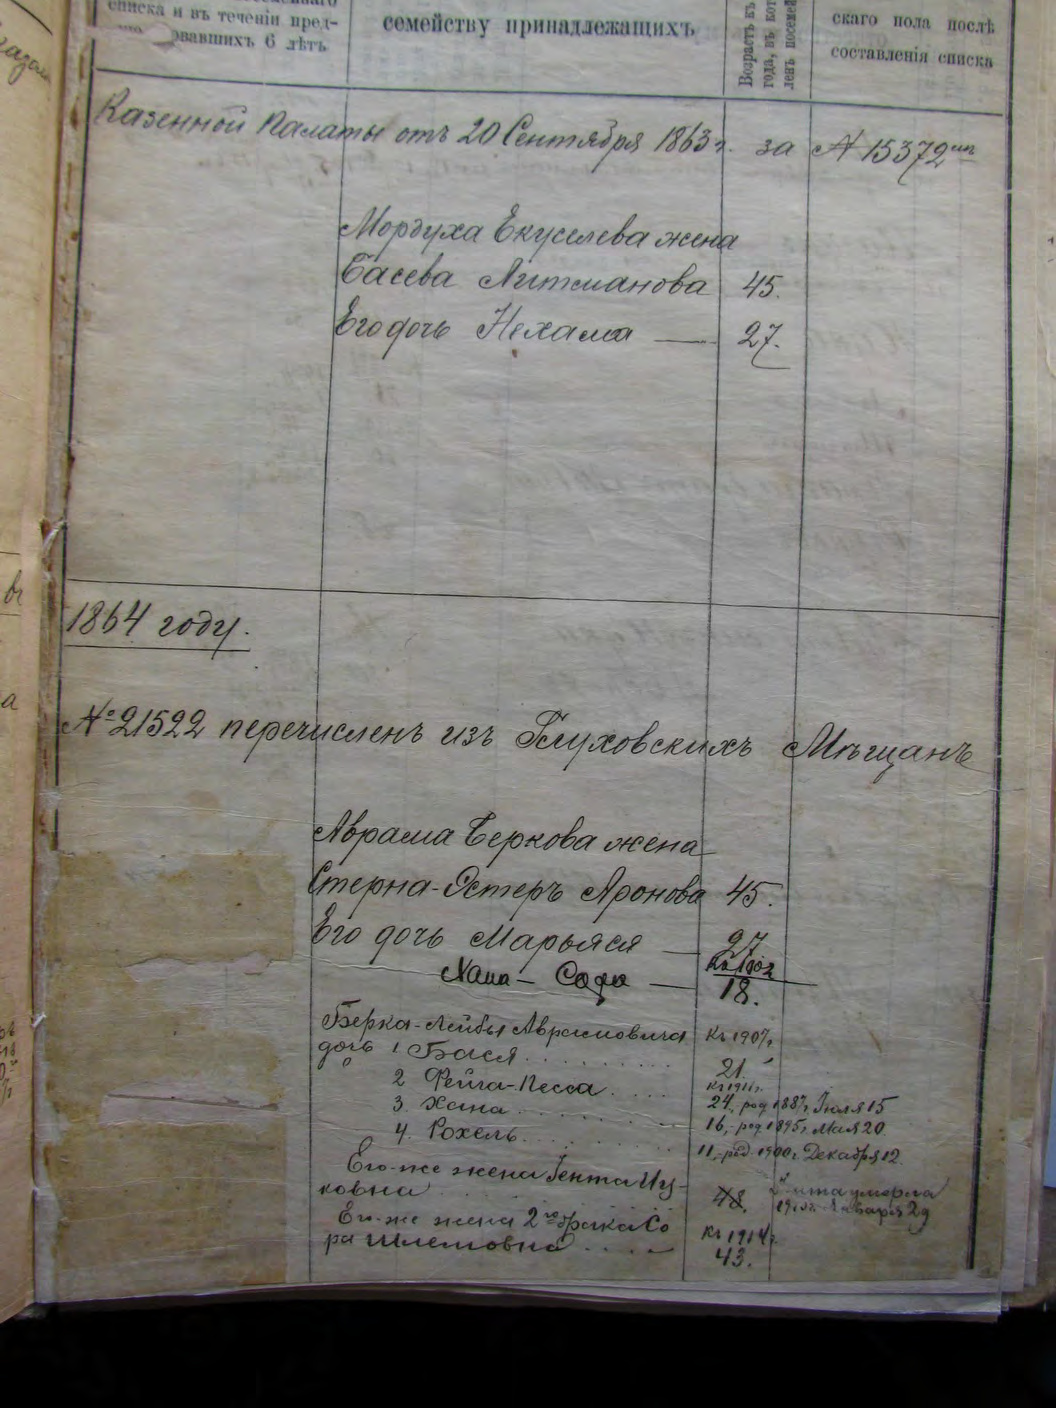 списка и въ теченіи пред-
овавшихъ 6 лѣтъ
семейству принадлежащихъ
Возрастъ къ
года, въ кот
ленъ посемей
скаго пола послѣ
составленія списка
Казенной Палаты отъ 20 Сентября 1863 г. за № 15372
Мордуха Екуселева жена
Басева Литманова 45.
Его дочь Нехама — 27.
1864 году.
№ 21522 перечисленъ изъ Глуховскихъ Мѣщанъ
Аврама Беркова жена
Стерна-Эстеръ Аронова 45.
Его дочь Марьяся — 27
Хана - Сора — 18.
Берка-Лейбы Аврамовича къ 1907 г.
дочь 1 Бася 21.
къ 1911 г.
2 Фейга-Песса 24, род 1887 г. Іюля 15
3. Хана 16, род 1895 г. Мая 20
4. Рохель 11, род 1900 г. Декабря 12.
Его-же жена Гента Иц-
ковна 48. Гента умерла
Января 29
Его-же жена 2го брака Со
къ 1914 г.
ра Шлемовна 43.